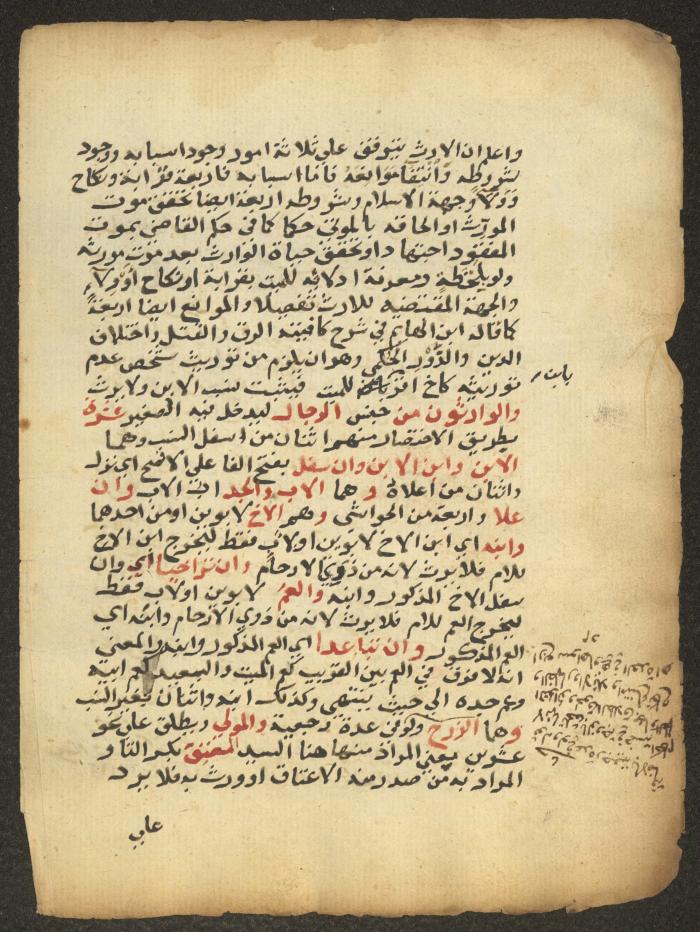 واعلم ان الارث يتوقف على ثلاثة امور وجود اسبابه ووجود
شروطه وانتفا موانعه فاما اسبابه فاربعة قرابة ونكاح
وولاء وجهة الاسلام وشروطه اربعة ايضا تحقق موت
المورث او الحاقه بالموتى حكما كما في حكم القاضي بموت
المفقود اجتهادا وتحقق حياة الوارث بعد موت مورثه
ولو بلحظة ومعرفة ادلائه للميت بقرابة او نكاح او ولاء
والجهة المقتضيه للارث تفصيلا والموانع ايضا اربعة
كما قاله ابن الهايم في شرح كافيته الرق والقتل واختلاف
الدين والدور الحكمي وهو ان يلزم من توريث شخص عدم
توريثه كاخ اقر بابن للميت فيثبت نسب الابن ولا يرث
والوارثون من جنس الرجال ليدخل فيه الصغير عشرة
بطريق الاختصار منهم اثنان من اسفل النسب وهما
الابن وابن الابن وان سفل بفتح الفا على الافصح اي نزل
واثنان من اعلاه وهما الاب والجد اب الاب وان
علا واربعة من الحواشي وهم الاخ لابوين او من احدهما
وابنه اي ابن الاخ لابوين او لاب فقط ليخرج ابن الاخ
للام فلا يرث لانه من ذوي الارحام وان تراخيا اي وان
سفل الاخ المذكور وابنه والعم لابوين او لاب فقط
ليخرج العم للام فلا يرث لانه من ذوي الارحام وابنه اي
العم المذكور وان تباعدا اي العم المذكور وابنه والمعنى
انه لا فرق في العم بين القريب كعم الميت والبعيد كعم ابيه
وعم جده الى حيث ينتهي وكذلك ابنه واثنان بغير النسب
وهما الزوج ولو في عدة رجعية والمولى ويطلق على نحو
عشرين معنى المراد منها هنا السيد المعتق بكسر التا و
المراد به من صدر منه الاعتاق او ورث به فلا يرد
على
بابن